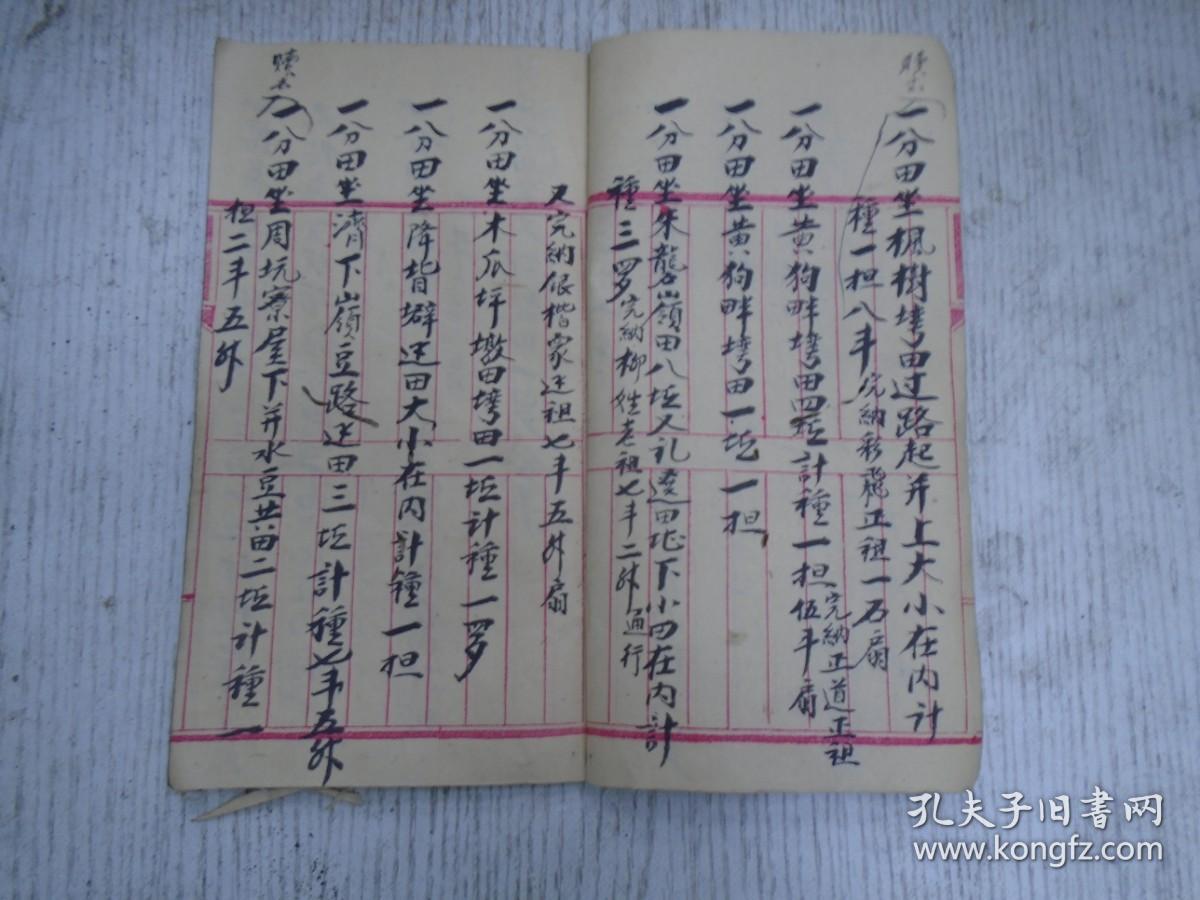 賣去
一分田坐楓樹垮田过路起并上大小在内計
種一担八斗 完納彩龍正祖一石扇
一分田坐黄狗畔垮田四坵計種一担
完納正道正祖伍斗扇
一分田坐黄狗畔垮田一坵一担
一分田坐朱龍嶺田八坵又礼邊田坵下小田在内計
種三籮 完納柳姓老祖七斗二升通行
又完納银楷家 祖七斗五升扇
一分田坐木瓜坪墩田垮田一坵計種一籮
一分田坐降背壩 田大小在内計種一担
一分田坐濟下嶺豆路 田三坵計種七斗五升
賣去
一分田坐周坑寮屋下并水豆共田二坵計種一
担二斗五升
孔夫子旧书网
www.kongfz.com